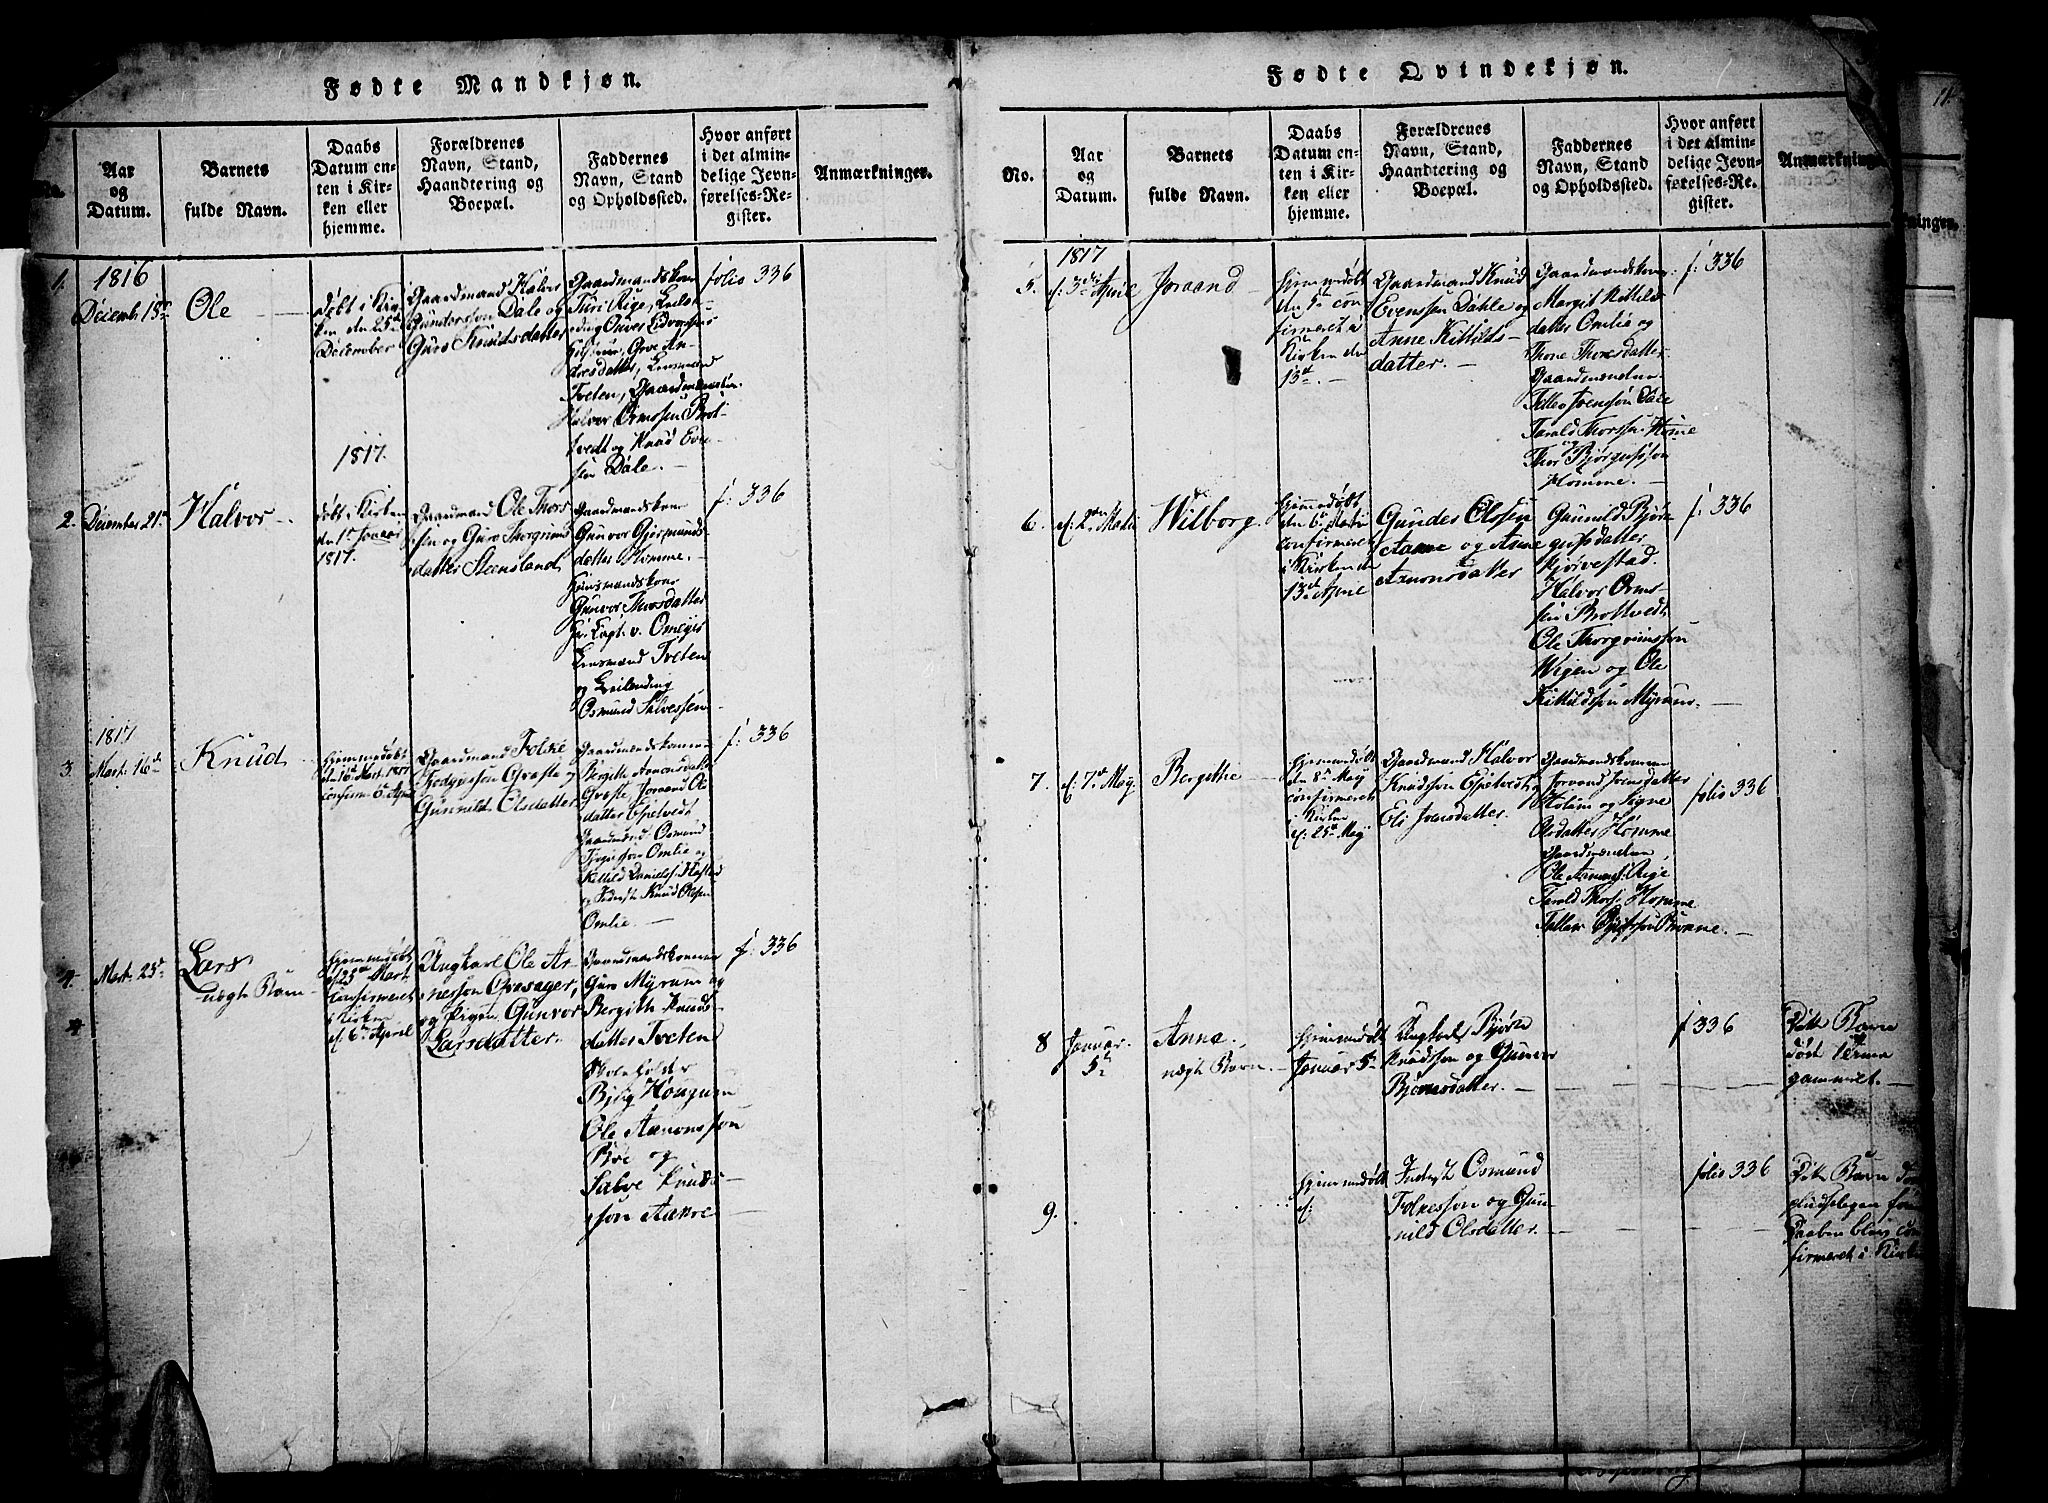 Fødte Mandkjøn.
No.
Aar
og
Datum.
Barnets
fulde Navn.
Daabs
Datum en-
ten i Kir-
ken eller
hjemme.
Forældrenes
Navn, Stand,
Haandtering og
Boepæl.
Faddernes
Navn, Stand
og Opholdssted.
Hvor anført
i det almin-
delige Jevn-
førelses-Re-
gister.
Anmærkninger.
1.
1816
Decemb. 15de
Ole
Døbt i Kir-
ken den 25de
December
Gaardmand Halvor
Gundersson Dale og
Guro Knudsdatter
Gaardmandskone
Turi Rige,
dresdatter, Lensmand
Tveten, Gaardmændene
Halvor Ormssen Brot-
tvedt og Knud Even-
sen Dale.
folio 336
1817.
2.
December 21de
Halvor
døbt i Kirken
den 1ste Januar
1817.
Gaardmand Ole Thors-
sen og Guro Thorgrims
datter Steensland
Gaardmandskone
Gunvor Gjermunds-
datter Homme.
Huusmandskone
Gunvor Thorsdatter
Hr. Capt. v. Omeyer
Lensmand Tveten
og Leilending
Osmund Salvessen
f: 336
1817
3.
Mart: 16de
Knud
hjemmedøbt
den 16de Mart. 1817
confirm: 6te April
Gaardmand Folke
Tjøgesson Øvrste og
Gunnild Olsdatter
Gaardmandskonerne
Bergith Aanonsdatter
Øvrste, Joraand Ols
datter Espetvedt
Gaardmænd: Osmund
Tjøgesson Omlie og
Kittild Danielss: Harstad
og Inderste Knud Olsen
Omlie
f: 336
4.
Mart: 25de
Lars
uægte Barn
hjemmedøbt
d: 25de Mart
confirmeret
i Kirken
d: 6te April
Ungkarl Ole Aa-
nesson Øvsager,
og Pigen Gunvor
Larsdatter.
Gaardmandskonerne
Guro Myrum og
Bergith Knuds
datter Tveten
Skoleholder
Bjørg Hougum
Ole Aanonsson
Bøe og
Salve Knuds-
son Aakre
f: 336
Fødte Qvindekjøn.
No.
Aar
og
Datum.
Barnets
fulde Navn.
Daabs
Datum en-
ten i Kir-
ken eller
hjemme.
Forældrenes
Navn, Stand,
Haandtering og
Boepæl.
Faddernes
Navn, Stand
og Opholdssted.
Hvor anført
i det almin-
delige Jevn-
førelses-Re-
gister.
Anmærkninger.
1817
5.
d: 3die April
Joraand
hjemmedøbt
den 5te con-
firmeret i
Kirken den
13de
Gaardmand Knud
Evenssen Dahle og
Anne Kittilds-
datter.
Gaardmandskone
Margit Kittilds
datter Omlie og
Thone Thoresdatter
Gaardmændene
Tellev Svensøn Dale
Tarald Thorssen Homme
og
Thor Bjørgufsøn
Homme.
f: 336
6.
d: 2den Marti
Wilborg.
hjemmedøbt
den 6te Martii
confirmeret
i Kirken den
13de April
Gunder Olssen
Aamne og Anne
Aanonsdatter
Gunuld Bjør-
gufsdatter
Kjørvestad.
Halvor Orms-
sen Brottvedt
Ole Thorgrimsson
Wigen og Ole
Kittildssøn Myrum.
f: 336
7.
d: 7de Maij
Bergithe
hjemmedøbt
den 8de Maij
confirmeret
i Kirken
d: 25de Maij
Gaardmand Halvor
Knudssøn Espetvedt,
Eli Svensdatter.
Gaardmandskonerne
Jorand Svensdatter
Holum og Signe
Olsdatter Homme
Gaardmændene,
Ole Aanonss: Rige
Tarald Thorss: Homme
folio 336
8
Januar.
5te
Anne.
uægte Barn.
hjemmedøbt
Januar 5te
Ungkarl Bjørn
Knudssøn og Gunvor
Bjørnsdatter.
f 336
Dette Barn
døde
gammelt.
9.
hjemmedøbt
d:
Inderst Osmund
Folkessøn og Gun-
nild Olsdatter.
folio 336
Dette Barn
firmeret i Kirken